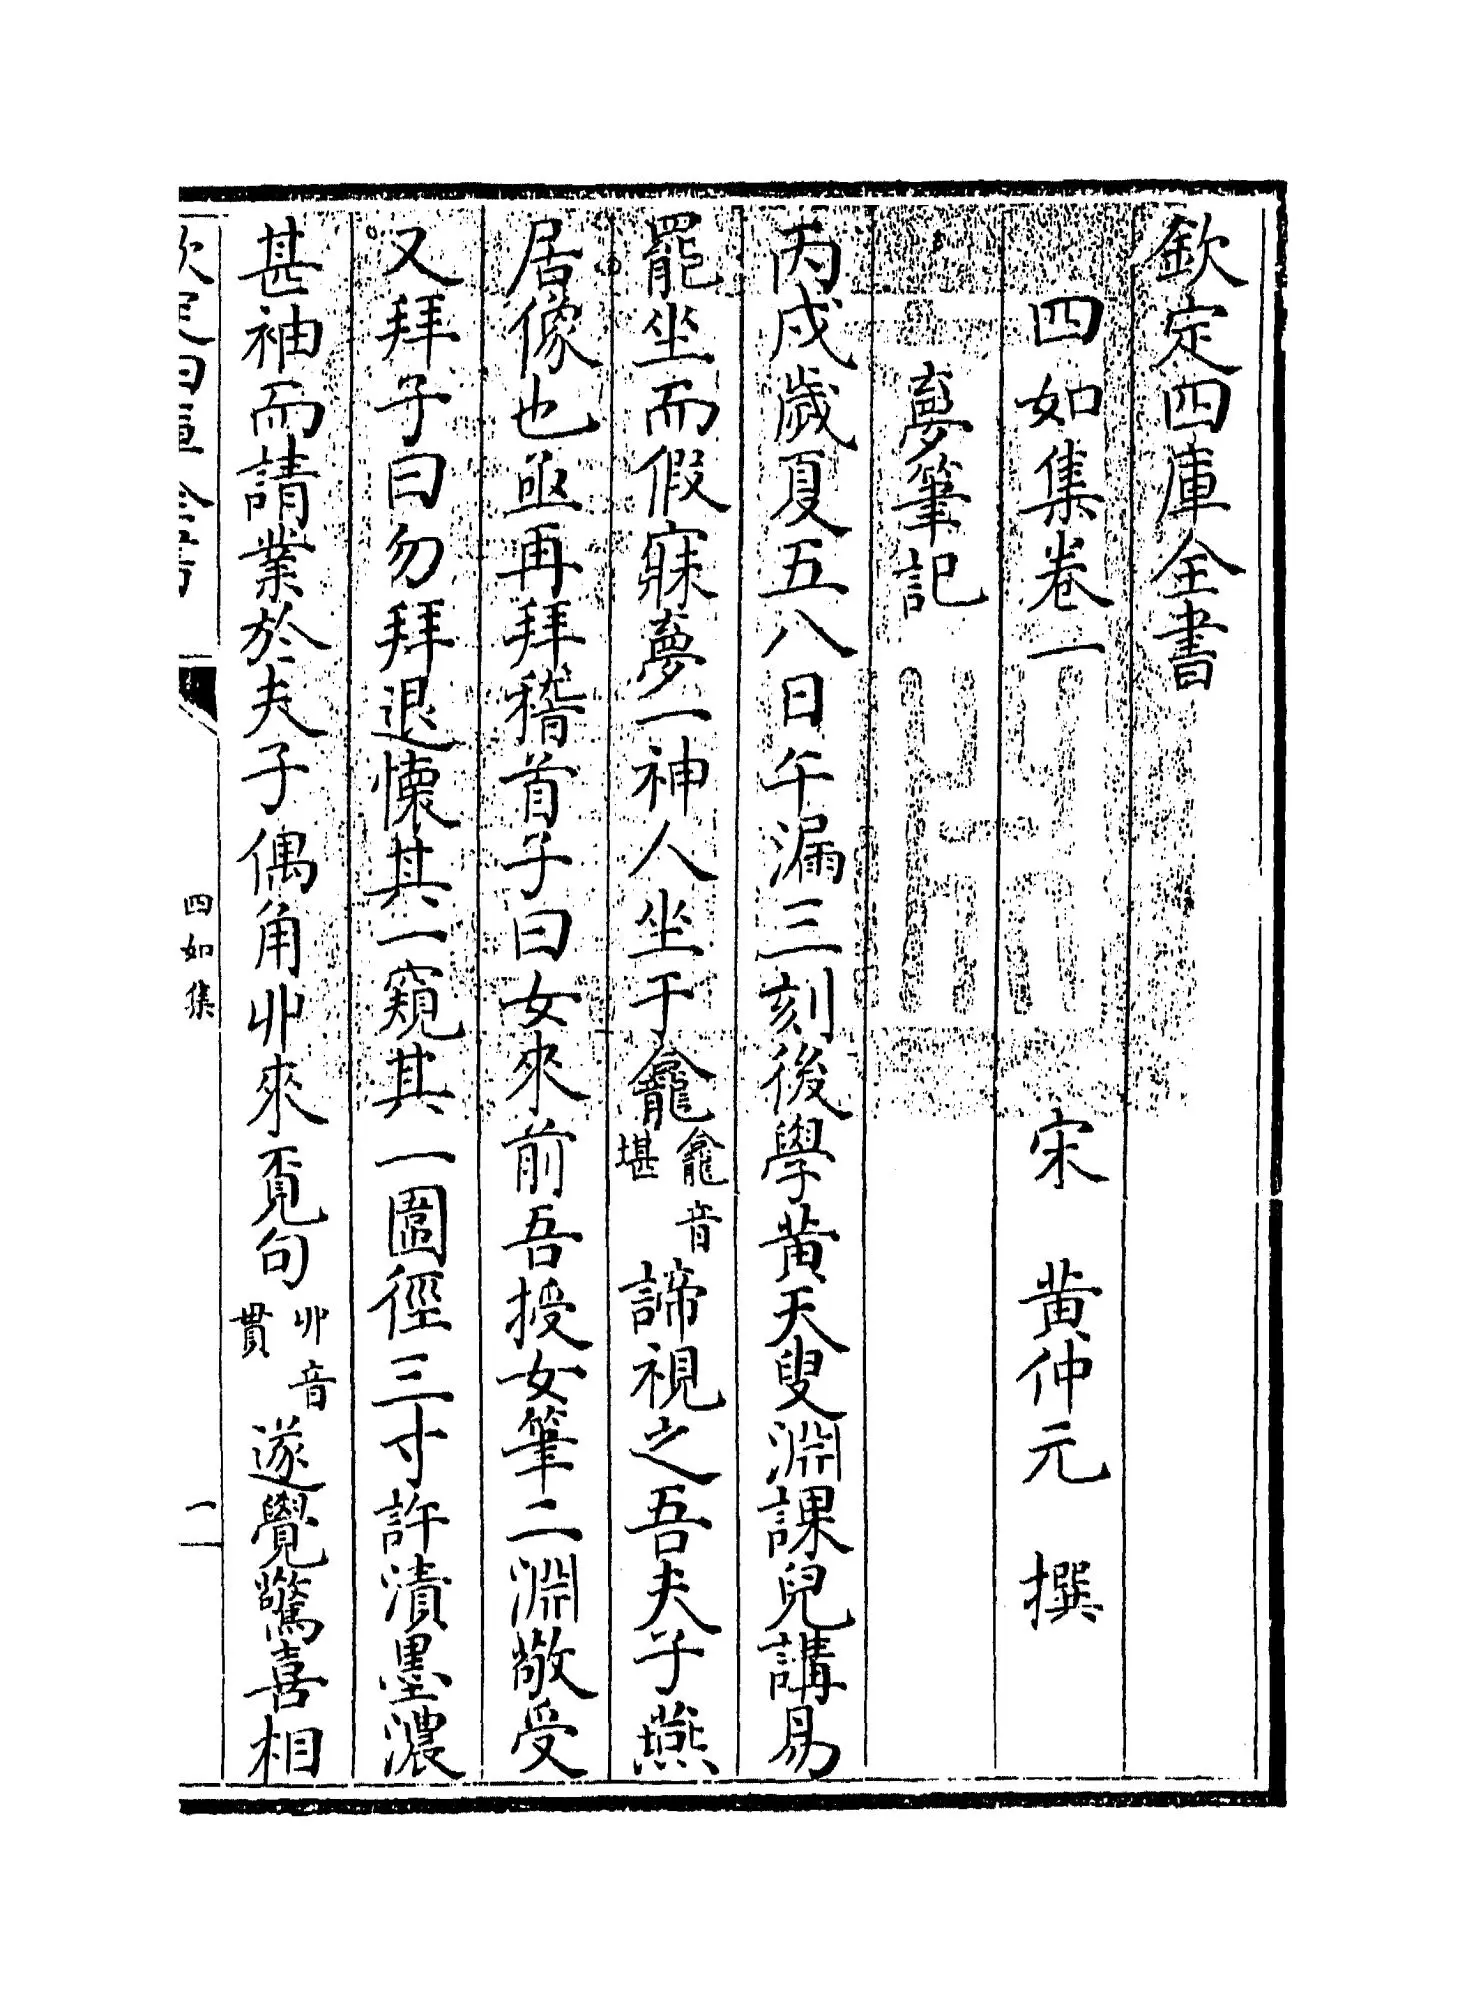 欽定四庫全書
四如集卷一　宋　黄仲元　撰
夢筆記
丙戌歲夏五八日午漏三刻後學黄天叟淵課兒講易
罷坐而假寐夢一神人坐于龕龕音堪諦視之吾夫子燕
居像也亟再拜稽首子曰女來前吾授女筆二淵敬受
又拜子曰勿拜退懷其一窺其一圍徑三寸許漬墨濃
甚袖而請業於夫子偶角丱來覔句丱音貫遂覺驚喜相
四如集　一